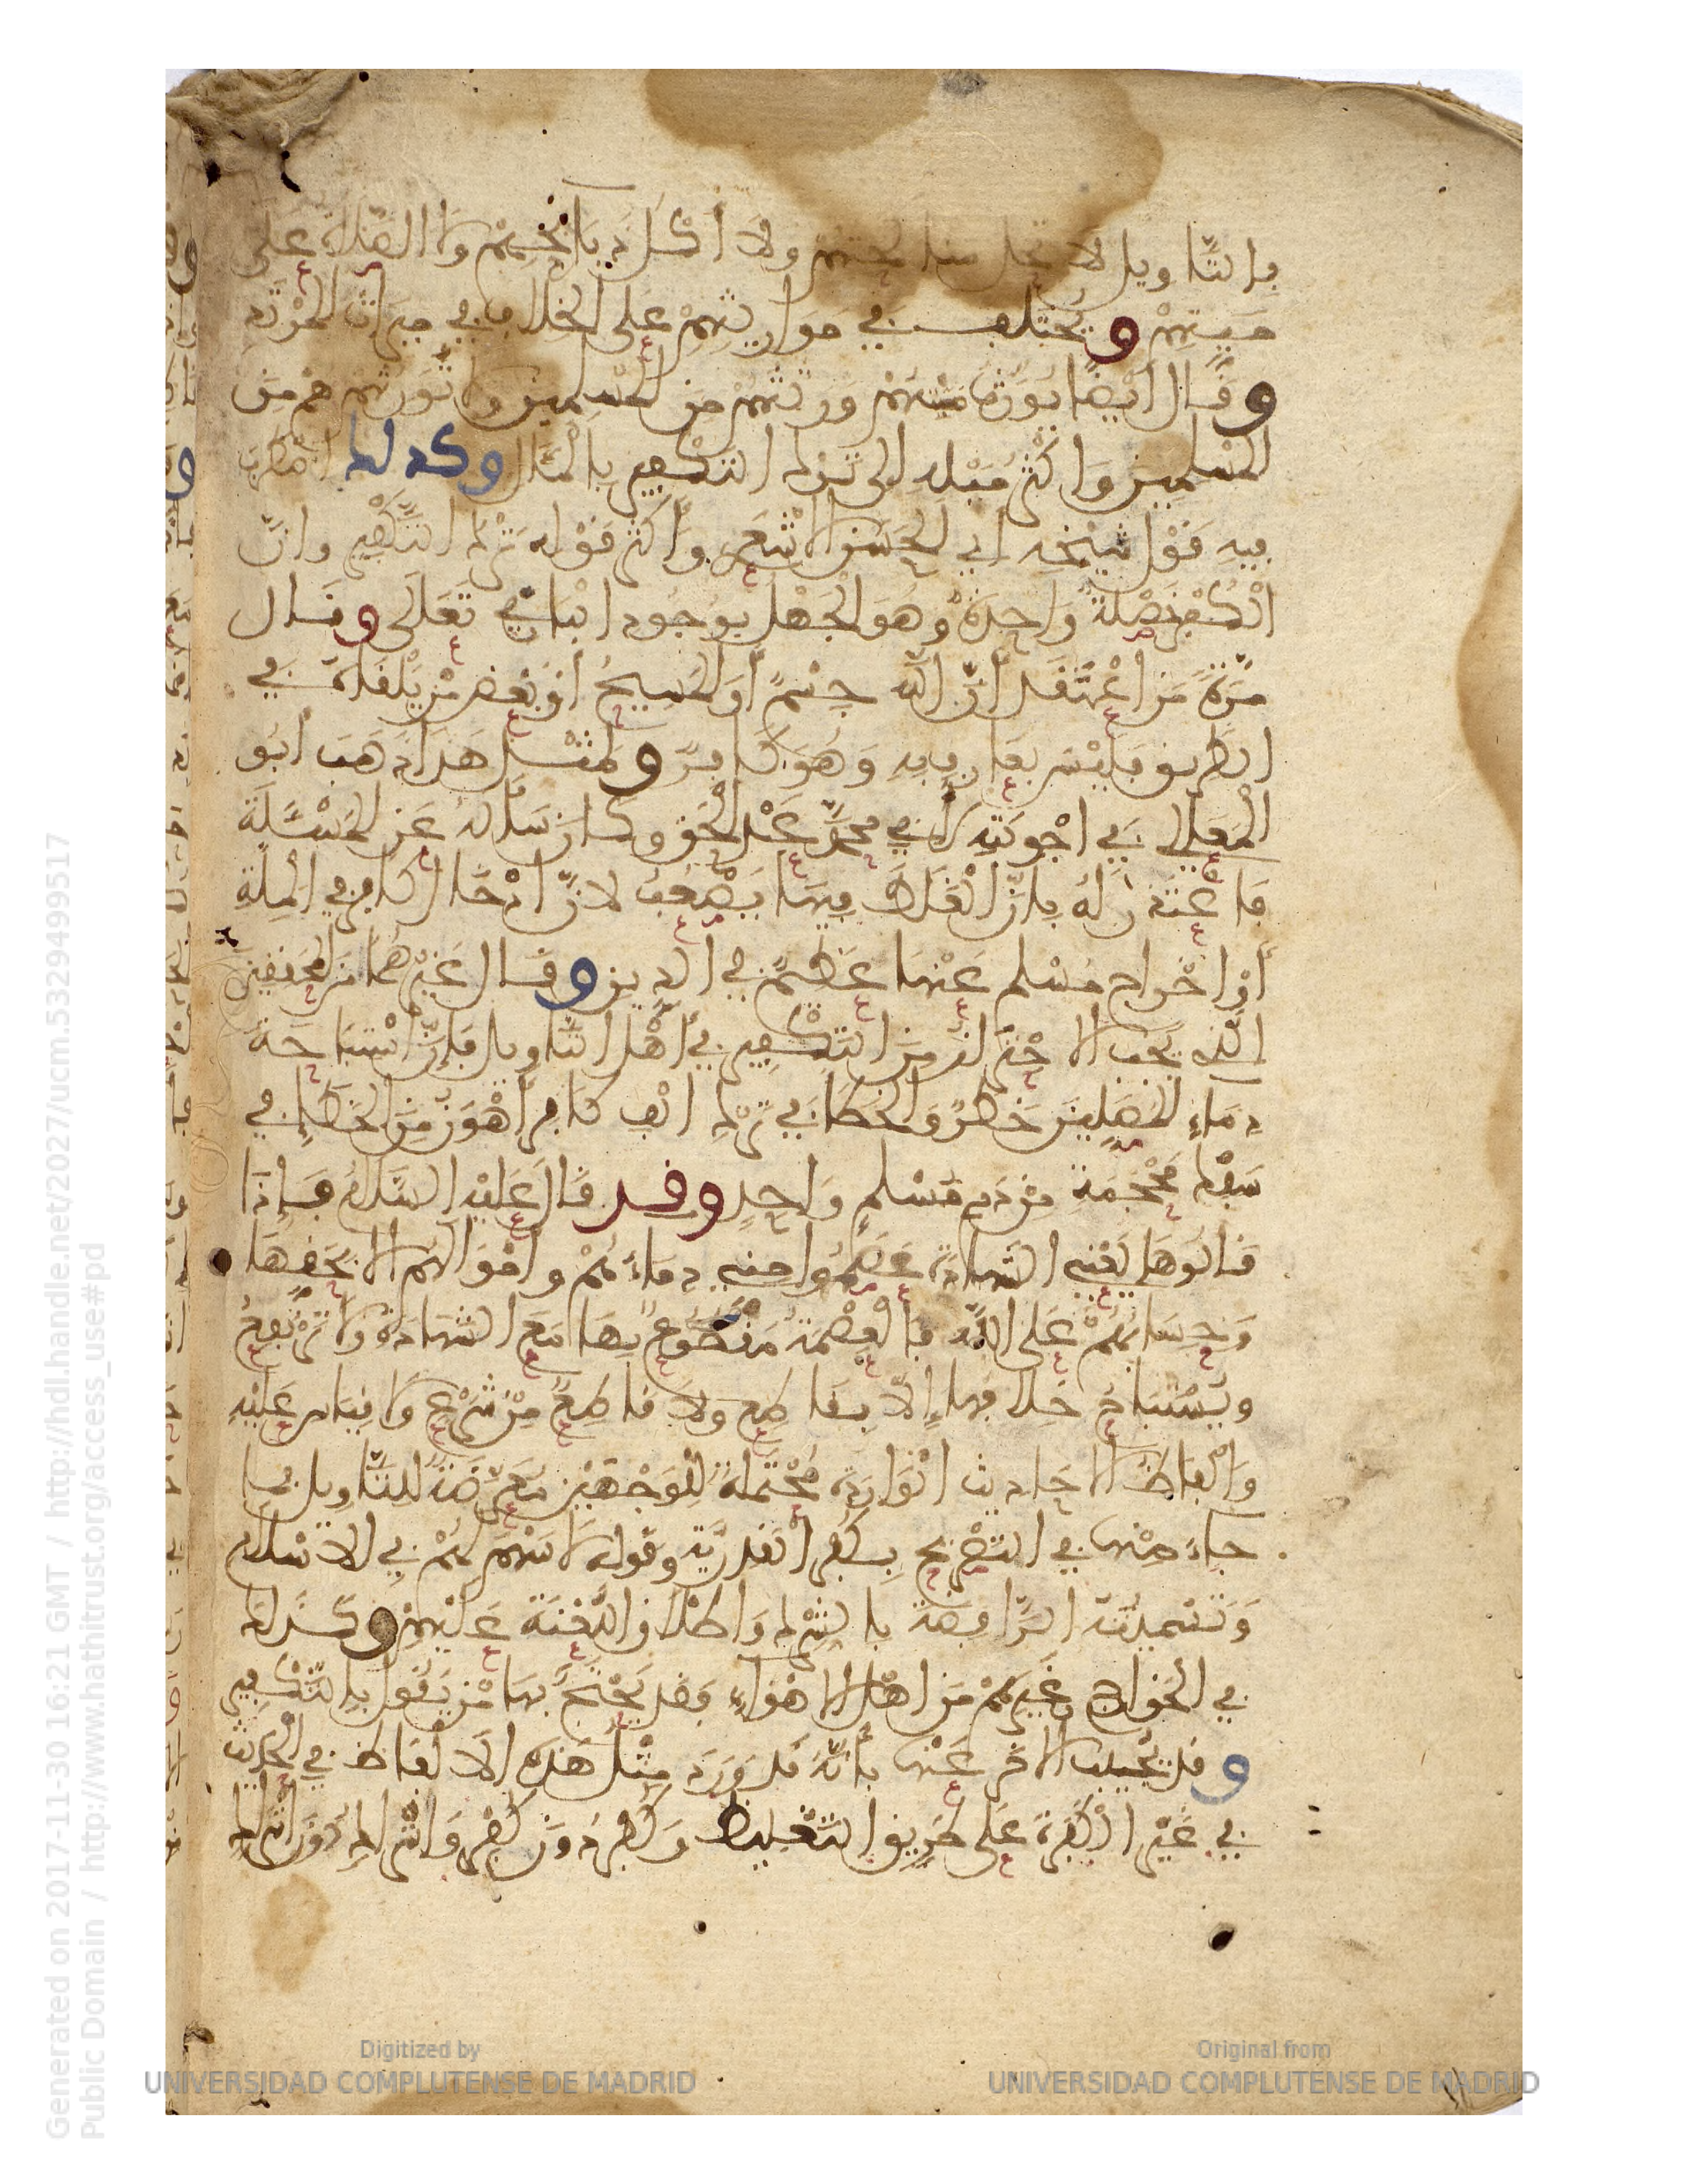 بالتأويل لا تحل مناكحتهم ولا أكل ذبائحهم ولا الصلاة على
ميتهم ويختلف في موارثتهم على الخلاف في ميراث المرتد
وقال أيضا يورث ميتهم ورثتهم من المسلمين ولا نورثهم هم من
المسلمين وأكثر ميله إلى ترك التكفير بالمآل وكذلك اضطرب
فيه قول شيخه أبي الحسن الأشعري وأكثر قوله ترك التكفير وأن
الكفر خصلة واحدة وهو الجهل بوجود الباري تعالى وقال
مرة من اعتقد أن الله جسم أو المسيح أو بعض من يلقاه في
الطريق فليس بعارف به وهو كافر ولمثل هذا ذهب أبو
المعالي في أجوبته لأبي محمد عبد الحق وكان سأله عن المسئلة
فاعتذر له بأن الغلط فيها يصعب لأن إدخال كافر في الملة
أو إخراج مسلم عنها عظيم في الدين وقال غيرهما من المحققين
الذي يجب الاحتراز من التكفير في أهل التأويل فإن استباحة
دماء المصلين خطر والخطأ في ترك ألف كافر أهون من الخطإ في
سفك محجمة من دم مسلم واحد وقد قال عليه السلام فإذا
قالوها يعني الشهادة عصموا مني دماءهم وأموالهم إلا بحقها
وحسابهم على الله فالعصمة مقطوع بها مع الشهادة ولا ترتفع
ويستباح خلافها إلا بقاطع ولا قاطع من شرع ولا قياس عليه
وألفاظ الأحاديث الواردة محتملة للوجهين معرضة للتأويل فما
جاء منها في التصريح بكفر القدرية وقوله لا سهم لهم في الإسلام
وتسميته الرافضة بالشرك وإطلاق اللعنة عليهم وكذلك
في الخوارج وغيرهم من أهل الأهواء فقد يحتج بها من يقول بالتكفير
وقد يجيب الآخر عنها بأنه قد ورد مثل هذه الألفاظ في الحديث
في غير الكفرة على طريق التغليظ وكفر دون كفر وإشراك دون إشراك
Generated on 2017-11-30 16:21 GMT / http://hdl.handle.net/2027/ucm.5329499517
Public Domain / http://www.hathitrust.org/access_use#pd
Digitized by
UNIVERSIDAD COMPLUTENSE DE MADRID
Original from
UNIVERSIDAD COMPLUTENSE DE MADRID